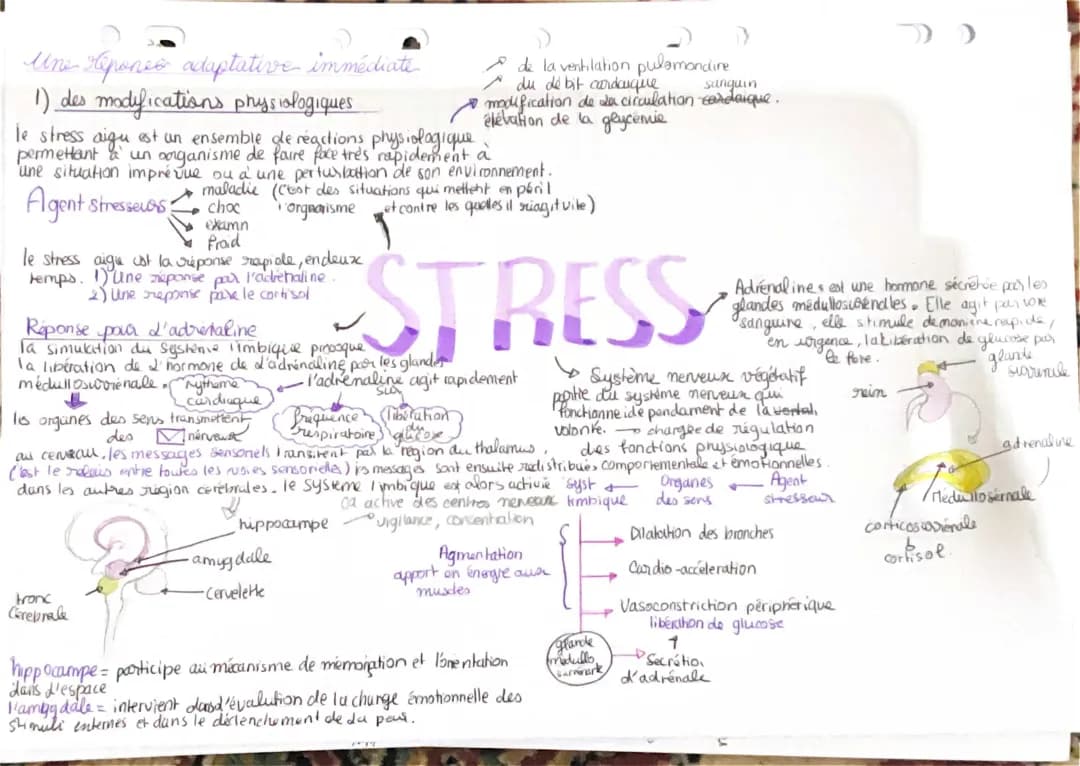 Une réponse adaptative immédiate
1) des modifications physiologiques
↗ de la ventilation pulomondire
↗ du débit cardaique
sanguin
modification de la circulation cardaique.
élévation de la glycémie
le stress aigu est un ensemble de réactions physiologique
permettant à un organisme de faire face très rapidement à
une situation imprévue ou à une perturbation de son environnement.
Agent stresseurs
maladie (C'est des situations qui mettent en péril
choc l'organisme et contre les quelles il réagit vite)
examn
froid
le stress aigu est la réponse rapide, en deux
temps. 1) Une réponse par l'adrénaline.
2) Une réponse par le cortisol
STRESS
Adrénaline : est une hormone sécrétée par les
glandes médullosurrénales. Elle agit par voie
sanguine, elle stimule de manière rapide,
en urgence, la libération de glucose par
le foie.
glande
surrénale
rein
Réponse pour l'adrénaline
la simulation du système limbique provoque
la libération de l'hormone de l'adrénaline par les glandes
médullosurrénale.
rythme
cardiaque
l'adrénaline agit rapidement
sur
fréquence
respiratoire
libération
du
glucose
Système nerveux végétatif
partie du système nerveux qui
fonctionne idépendament de la
volonté. → chargée de régulation
des fonctions physiologique
les organes des sens transmettent
des nerveux
au cerveau. les messages sensoriels transitent par la région du thalamus,
(c'est le relais entre toutes les voies sensorielles) les messages sont ensuite redistribués comportementale et émotionnelles.
dans les autres région cérébrales. le système limbique est alors activé
ça active des centres nerveux
vigilance, concentration
syst
limbique
Organes
des sens
Agent
stresseur
adrenaline
Médullosérnale
corticosurrénale
cortisol.
hippocampe
amygdale
Cervelette
tronc
Cérebrale
Agmentation
apport en énergie aux
muscles
Dilatation des bronches
Cardio-accéleration
Vasoconstriction périphérique
libération de glucose
glande
médullo
surrénale
Sécrétion
d'adrénale
hippocampe = participe au mécanisme de mémorisation et l'orientation
dans l'espace
l'amygdale = intervient dans l'évalution de la charge émotionnelle des
stimuli externes et dans le déclenchement de la peur.